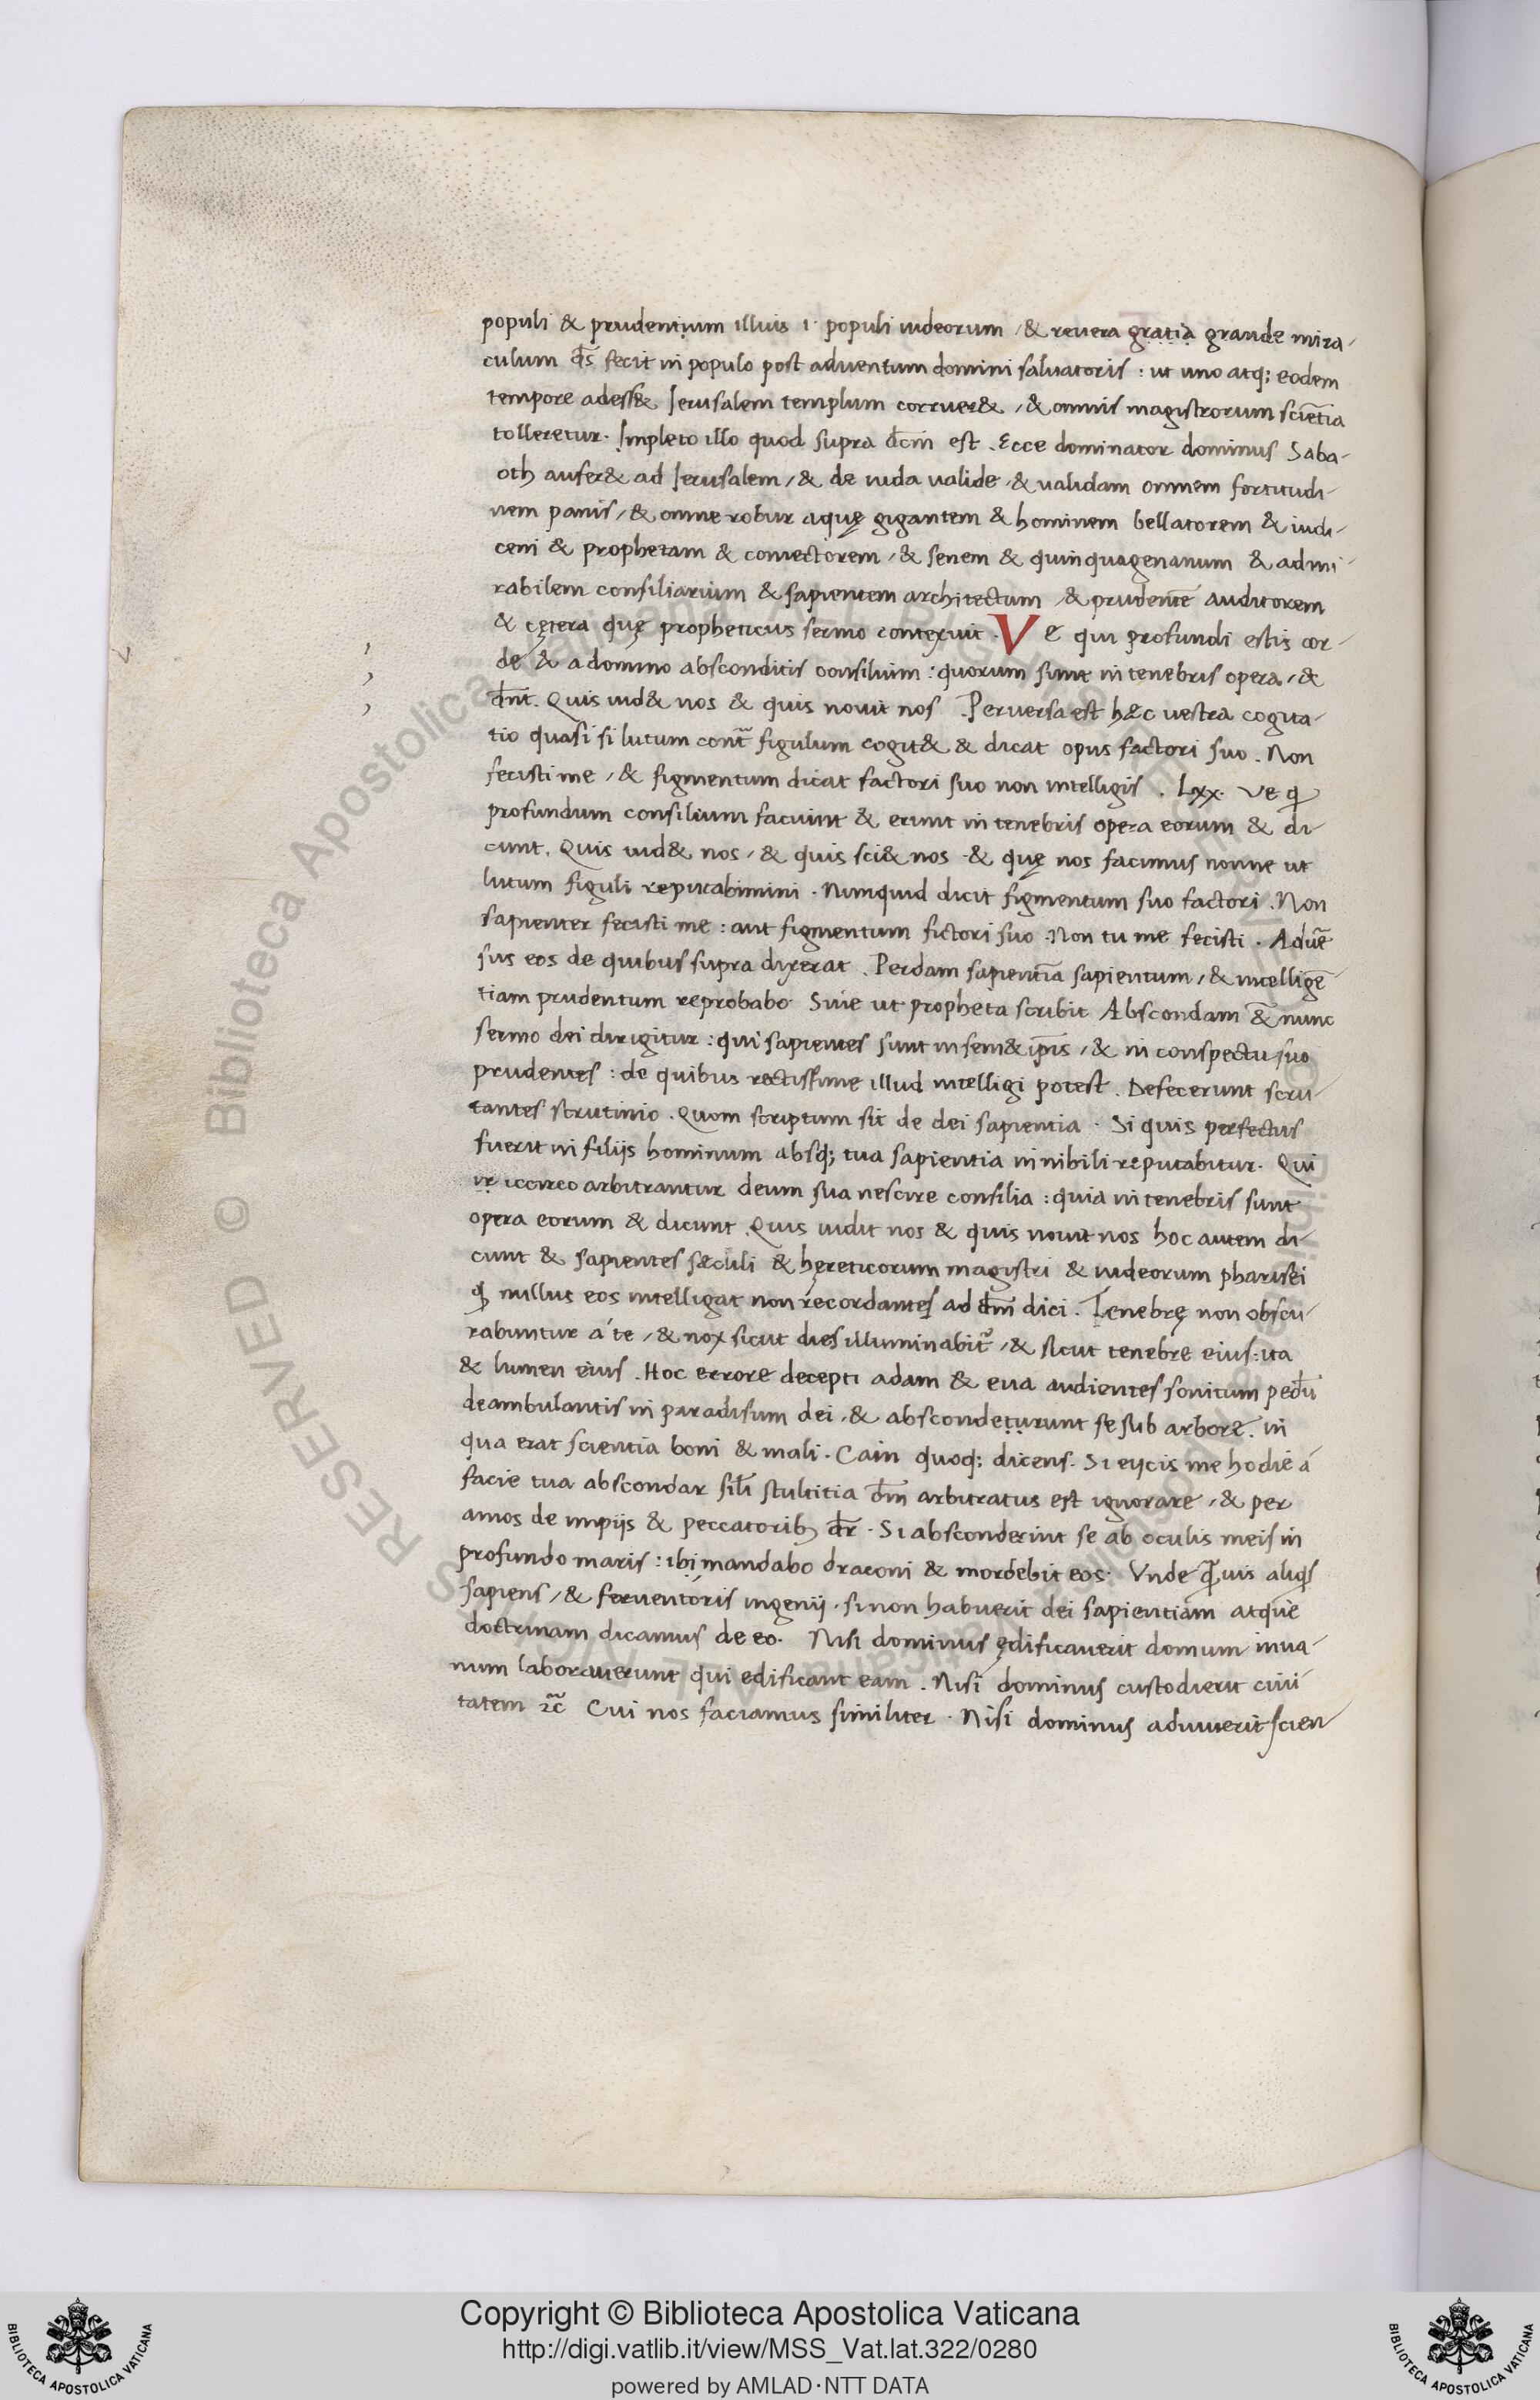 populi & prudentium illius i· populi iudeorum / & reuera gratia grande mira-
culum d̄s fecit in populo post aduentum domini saluatoris : ut uno atq; eodem
tempore adess& Ierusalem templum corruer& / & omnis magistrorum sciētia
tolleretur. Impleto illo quod supra dc̄m est . Ecce dominator dominus Saba-
oth aufer& ad Ierusalem / & de iuda ualide / & ualidam omnem fortitudi-
nem panis / & omne robur aquę gigantem & hominem bellatorem & iudi-
cem & prophetam & coniectorem / & senem & quinquagenarium & admi-
rabilem consiliarium & sapientem architectum / & prudentē auditorem
& cętera quę propheticus sermo contexuit . Ve qui profundi estis cor-
de / & a domino absconditis consilium : quorum sunt in tenebris opera / &
dn̄t. Quis uid& nos & quis nouit nos . Peruersa est hæc uestra cogita-
tio quasi si lutum cont̃ figulum cogit& & dicat opus factori suo . Non
fecisti me / & figmentum dicat factori suo non intelligis . Lxx. Ve q
profundum consilium faciunt & erunt in tenebris opera eorum & di-
cunt. Quis uid& nos / & quis sci& nos & quę nos facimus nonne ut
lutum figuli reputabimini . Nunquid dicit figmentum suo factori . Non
sapienter fecisti me : aut figmentum fictori suo . Non tu me fecisti . Aduē
sus eos de quibus supra dixerat . Perdam sapientiā sapientum / & intelligē
tiam prudentum reprobabo. Siue ut propheta scribit Abscondam & nunc
sermo dei dirigitur : qui sapientes sunt in sem& ip̄is / & in conspectu suo
prudentes : de quibus rectissime illud intelligi potest . Defecerunt scru-
tantes scrutinio . Quom scriptum sit de dei sapientia . Si quis perfectus
fuerit in filijs hominum absq; tua sapientia in nihili reputabitur. Qui
iccirco arbitrantur deum sua nescire consilia : quia in tenebris sunt
opera eorum & dicunt . Quis uidit nos & quis nouit nos hoc autem di-
cunt & sapientes sæculi & hęreticorum magistri & iudeorum pharisei
q nullus eos intelligat non recordantes ad dn̄m dici . Tenebrę non obscu-
rabuntur á te / & nox sicut dies illuminabit̃ / & sicut tenebre eius : ita
& lumen eius . Hoc errore decepti adam & eua audientes sonitum pedū
deambulantis in paradisum dei / & abscondeturunt se sub arbore . in
qua erat scientia boni & mali . Cain quoq; dicens. Si eijcis me hodie á
facie tua abscondar sil̄i stultitia dm̄ arbitratus est ignorare / & per
amos de impijs & peccatorib; dr̄ . Si absconderint se ab oculis meis in
profundo maris : ibi mandabo draconi & mordebit eos. Vnde q̄uis aliqs
sapiens / & feruentoris ingenij . si non habuerit dei sapientiam atque
doctrinam dicamus de eo. Nisi dominus ędificauerit domum in ua-
num laborauerunt qui edificant eam . Nisi dominus custodierit ciui
tatem ⁊c̃ Cui nos faciamus similiter . Nisi dominus adiuuerit scien
Copyright © Biblioteca Apostolica Vaticana
http://digi.vatlib.it/view/MSS_Vat.lat.322/0280
powered by AMLAD·NTT DATA
BIBLIOTECA APOSTOLICA VATICANA
BIBLIOTECA APOSTOLICA VATICANA